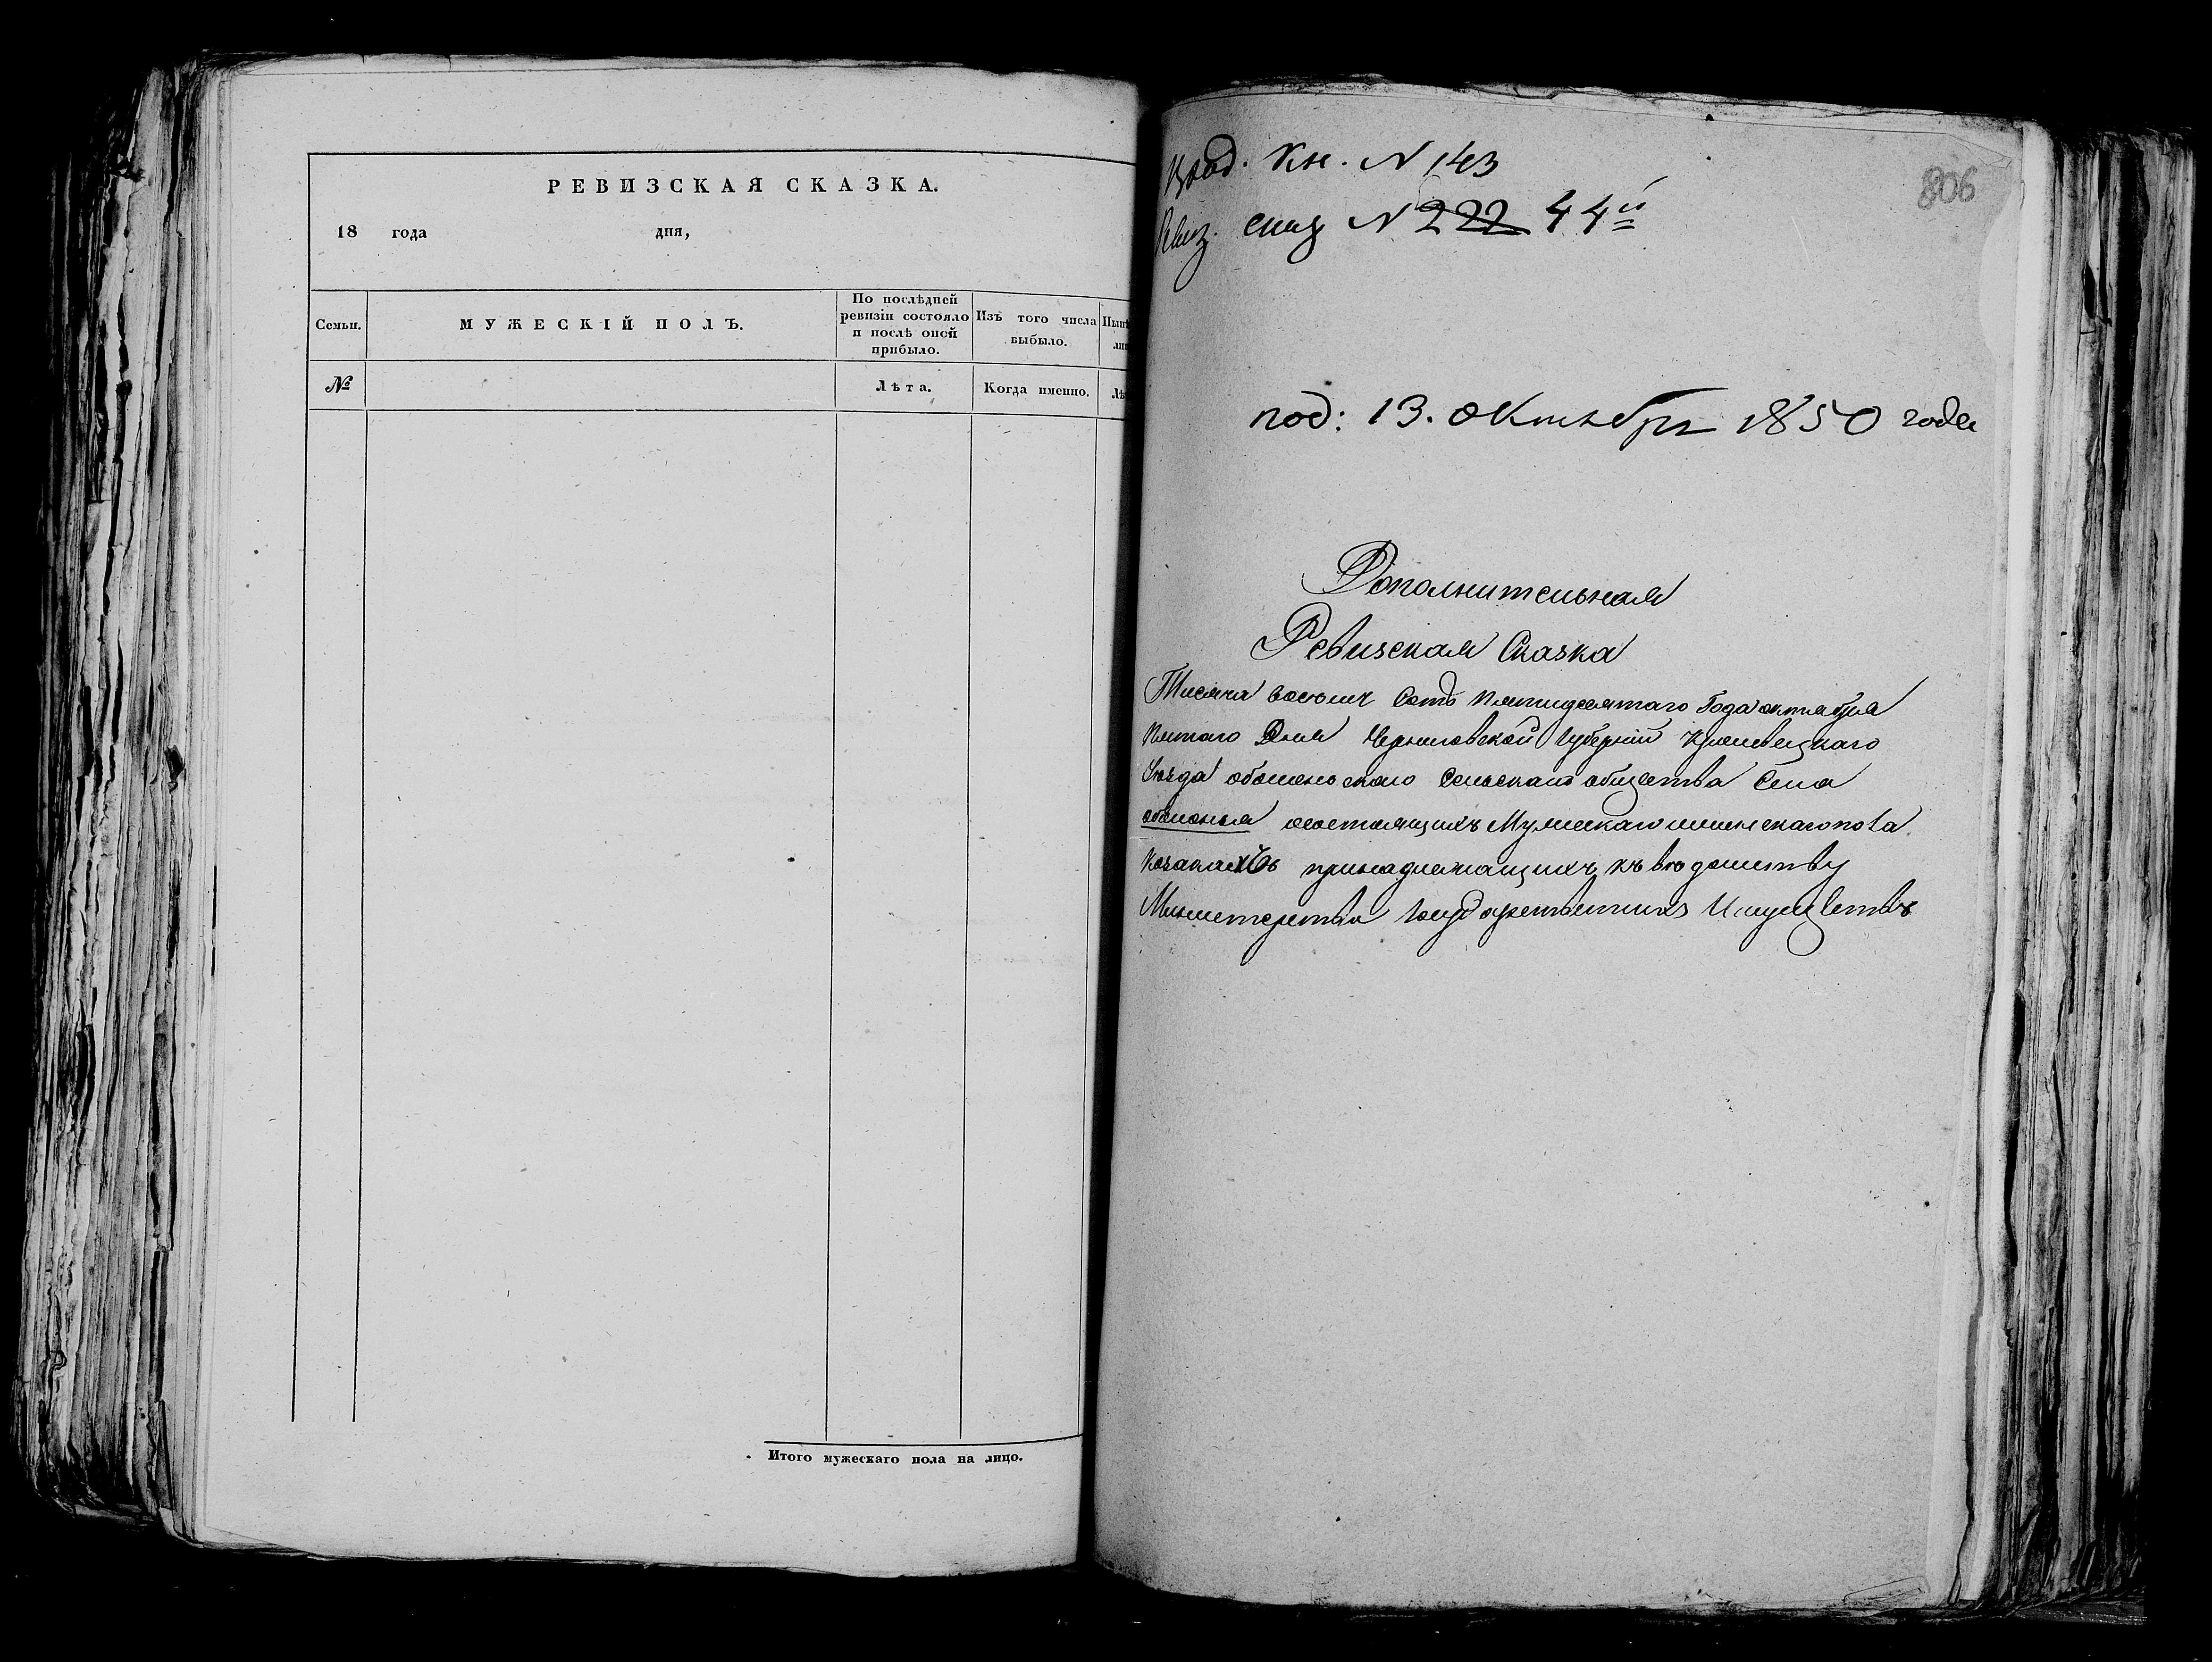 РЕВИЗСКАЯ СКАЗКА.
18 года дня,
Семьи.
МУЖЕСКІЙ ПОЛЪ.
По послѣдней
ревизіи состояло
и послѣ оной
прибыло.
Изъ того числа
выбыло.
№
Лѣта.
Когда именно.
Итого мужескаго пола на лицо.
806
Кн. N 143
Ревиз. сказ N 222 44й
под: 13. Октября 1850 года
Дополнительная
Ревизская Сказка
Тисяча восемъ Сотъ Пятидесятаго Года октября
Пятаго Дня Черниговской Губерніи Кролевецкаго
Уѣзда оболонскаго Сельскаго общества Села
оболонья состоящихъ Мужескаго и женскаго пола
Козакахъ принадлежащихъ къ вѣдомству
Министерства Государственныхъ Имуществъ